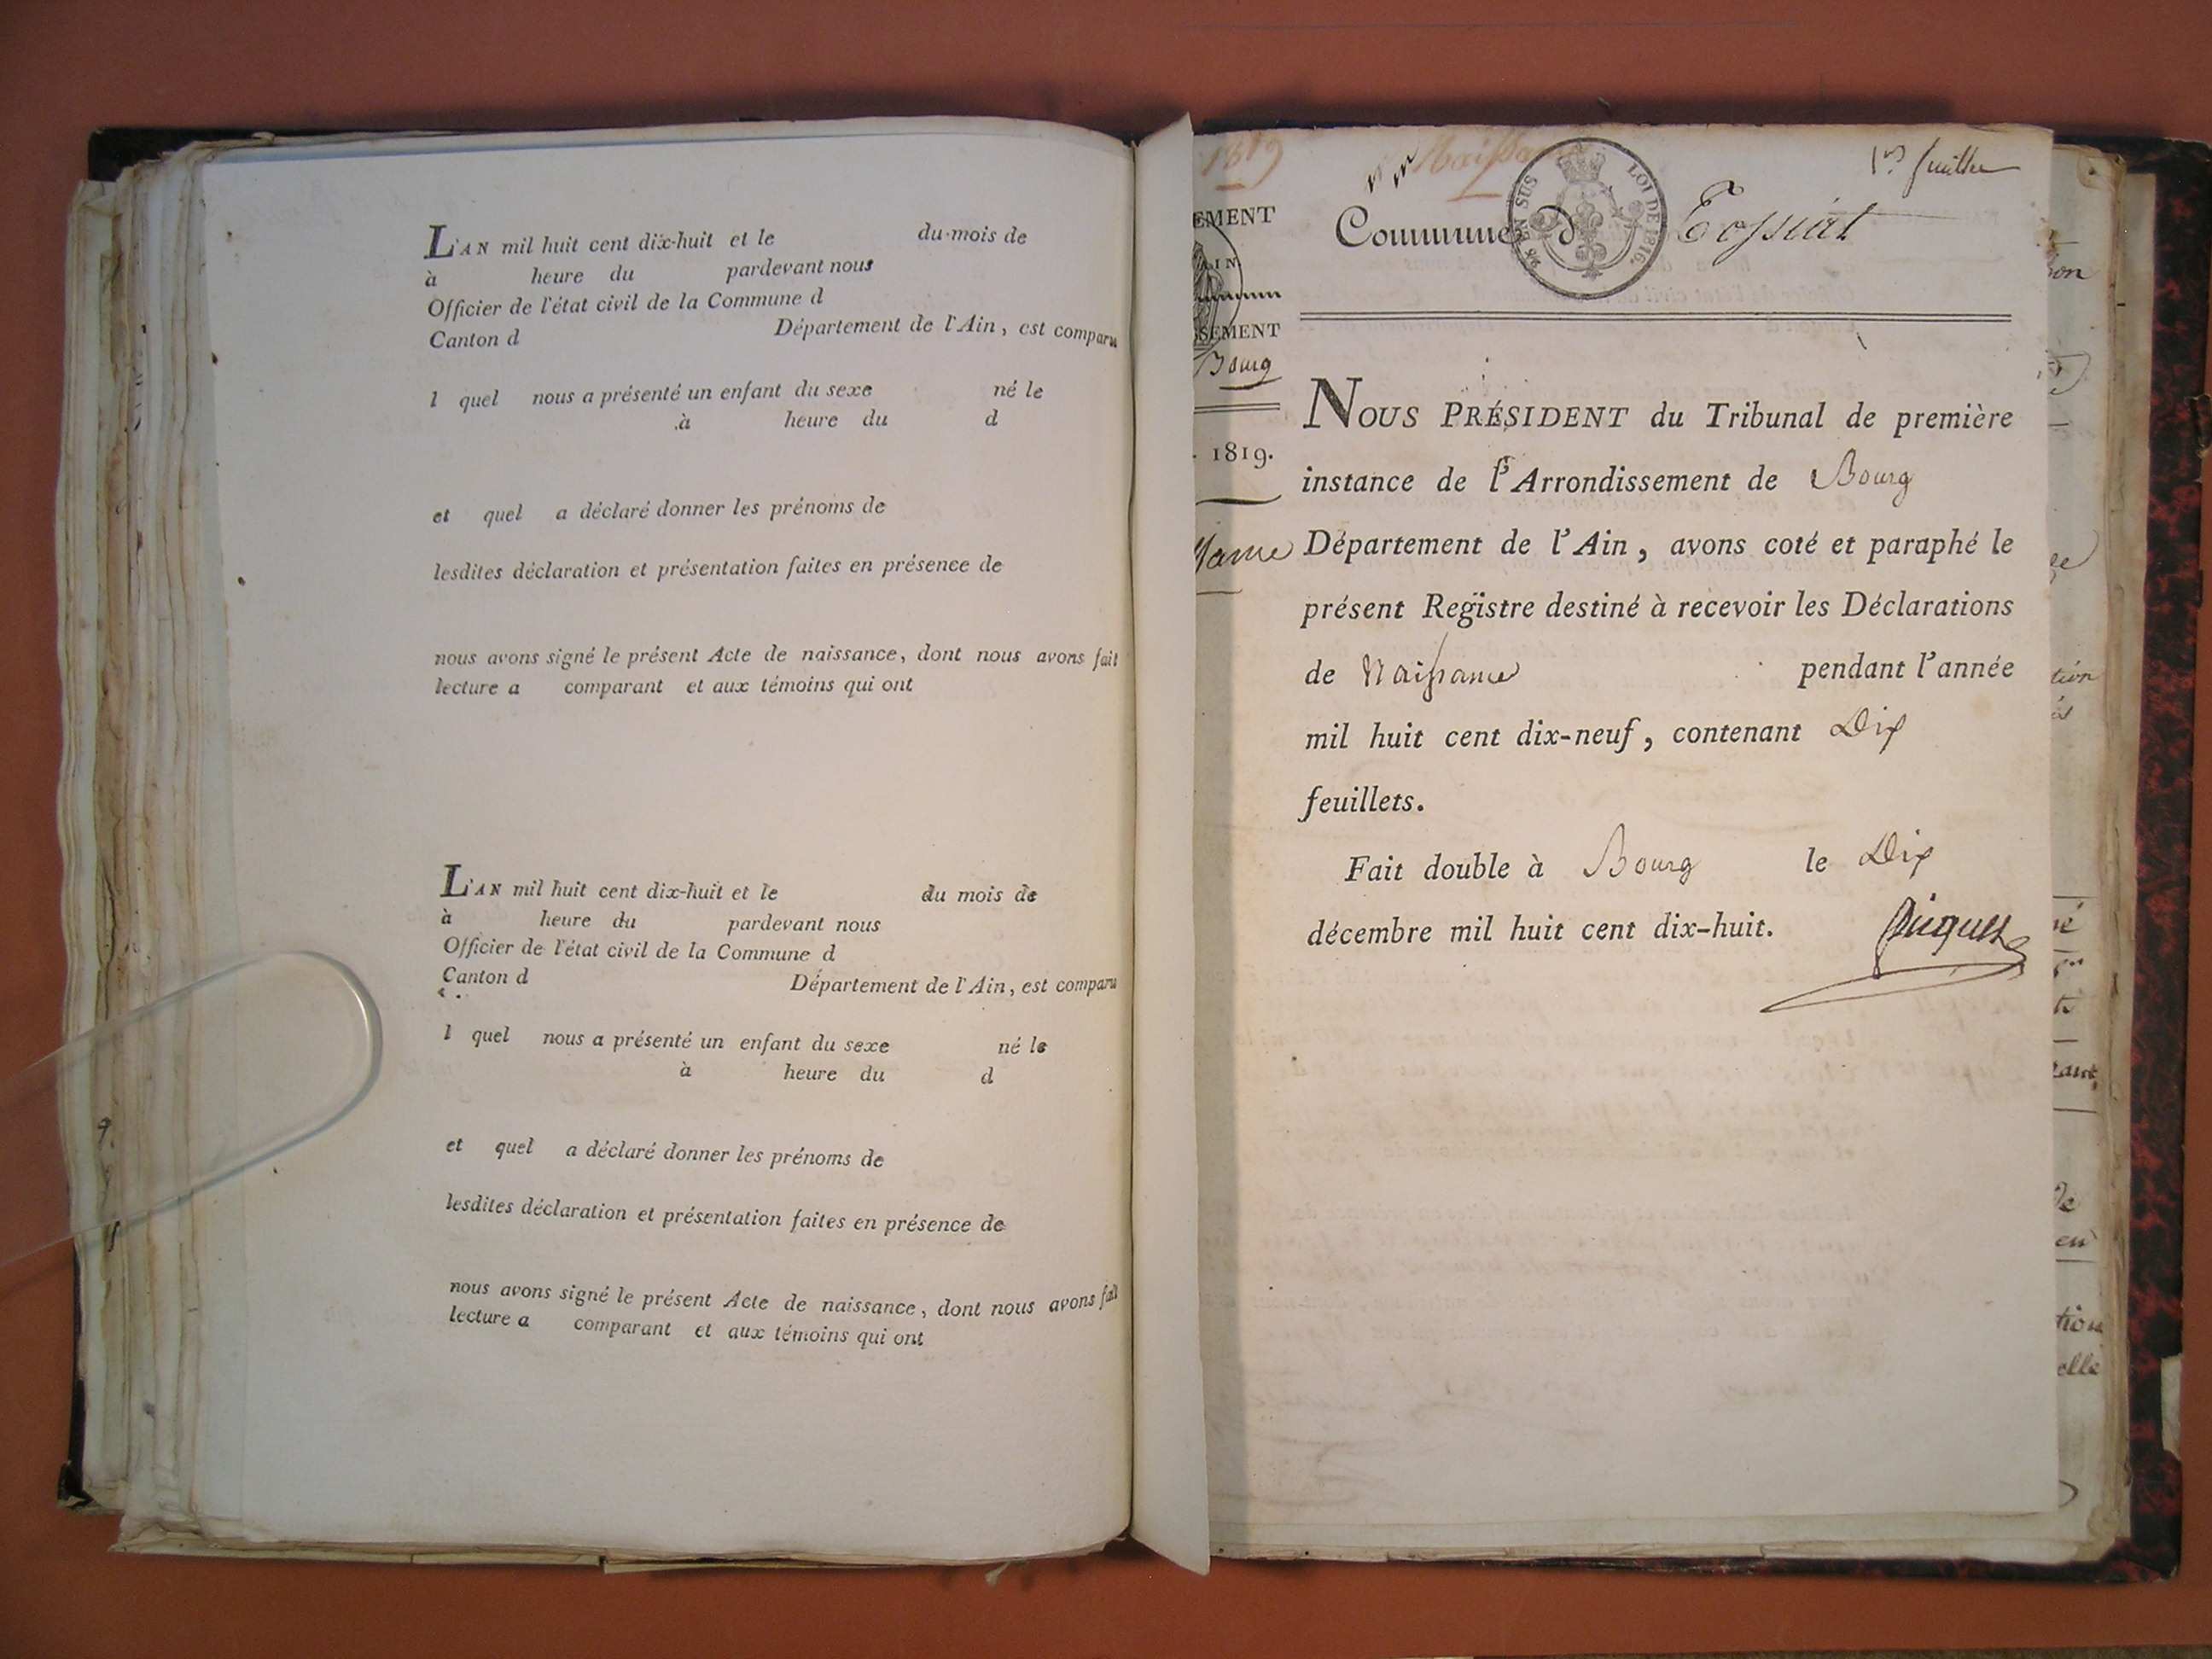 L'AN mil huit cent dix-huit et le du mois de
à heure du pardevant nous
Officier de l'état civil de la Commune d
Canton d Département de l'Ain, est comparu
l quel nous a présenté un enfant du sexe né le
à heure du d
et quel a déclaré donner les prénoms de
lesdites déclaration et présentation faites en présence de
nous avons signé le présent Acte de naissance, dont nous avons fait
lecture a comparant et aux témoins qui ont
L'AN mil huit cent dix-huit et le du mois de
à heure du pardevant nous
Officier de l'état civil de la Commune d
Canton d Département de l'Ain, est comparu
l quel nous a présenté un enfant du sexe né le
à heure du d
et quel a déclaré donner les prénoms de
lesdites déclaration et présentation faites en présence de
nous avons signé le présent Acte de naissance, dont nous avons fait
lecture a comparant et aux témoins qui ont
1819
EMENT
AIN
SSEMENT
Bourg
1819.
1er feuillet
Commune d Tossiat
EN SUS LOI DE 1816.
NOUS PRÉSIDENT du Tribunal de première
instance de l'Arrondissement de Bourg
Département de l'Ain, avons coté et paraphé le
présent Registre destiné à recevoir les Déclarations
de Naissance pendant l'année
mil huit cent dix-neuf, contenant Dix
feuillets.
Fait double à Bourg le Dix
décembre mil huit cent dix-huit.